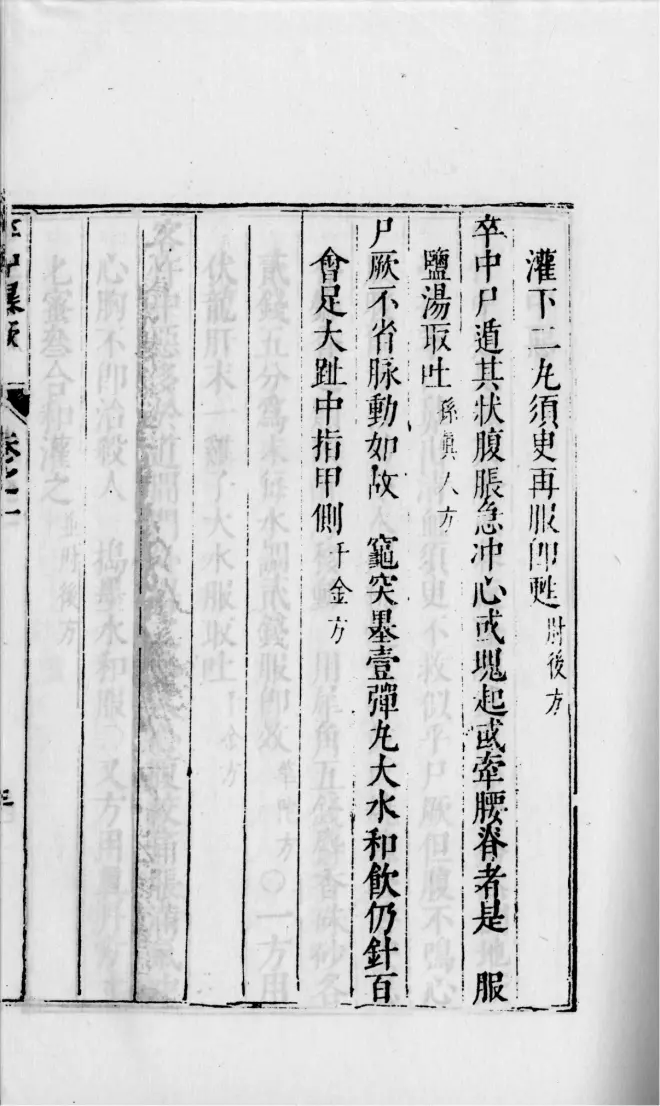 灌下二丸須臾再服卽甦 肘後方
卒中尸遁其狀腹脹急冲心或塊起或牽腰脊者是 服
鹽湯取吐 孫眞人方
尸厥不省脉動如故 竈突墨壹彈丸大水和飮仍針百
會足大趾中指甲側 千金方
卒中暴厥 卷之二 三